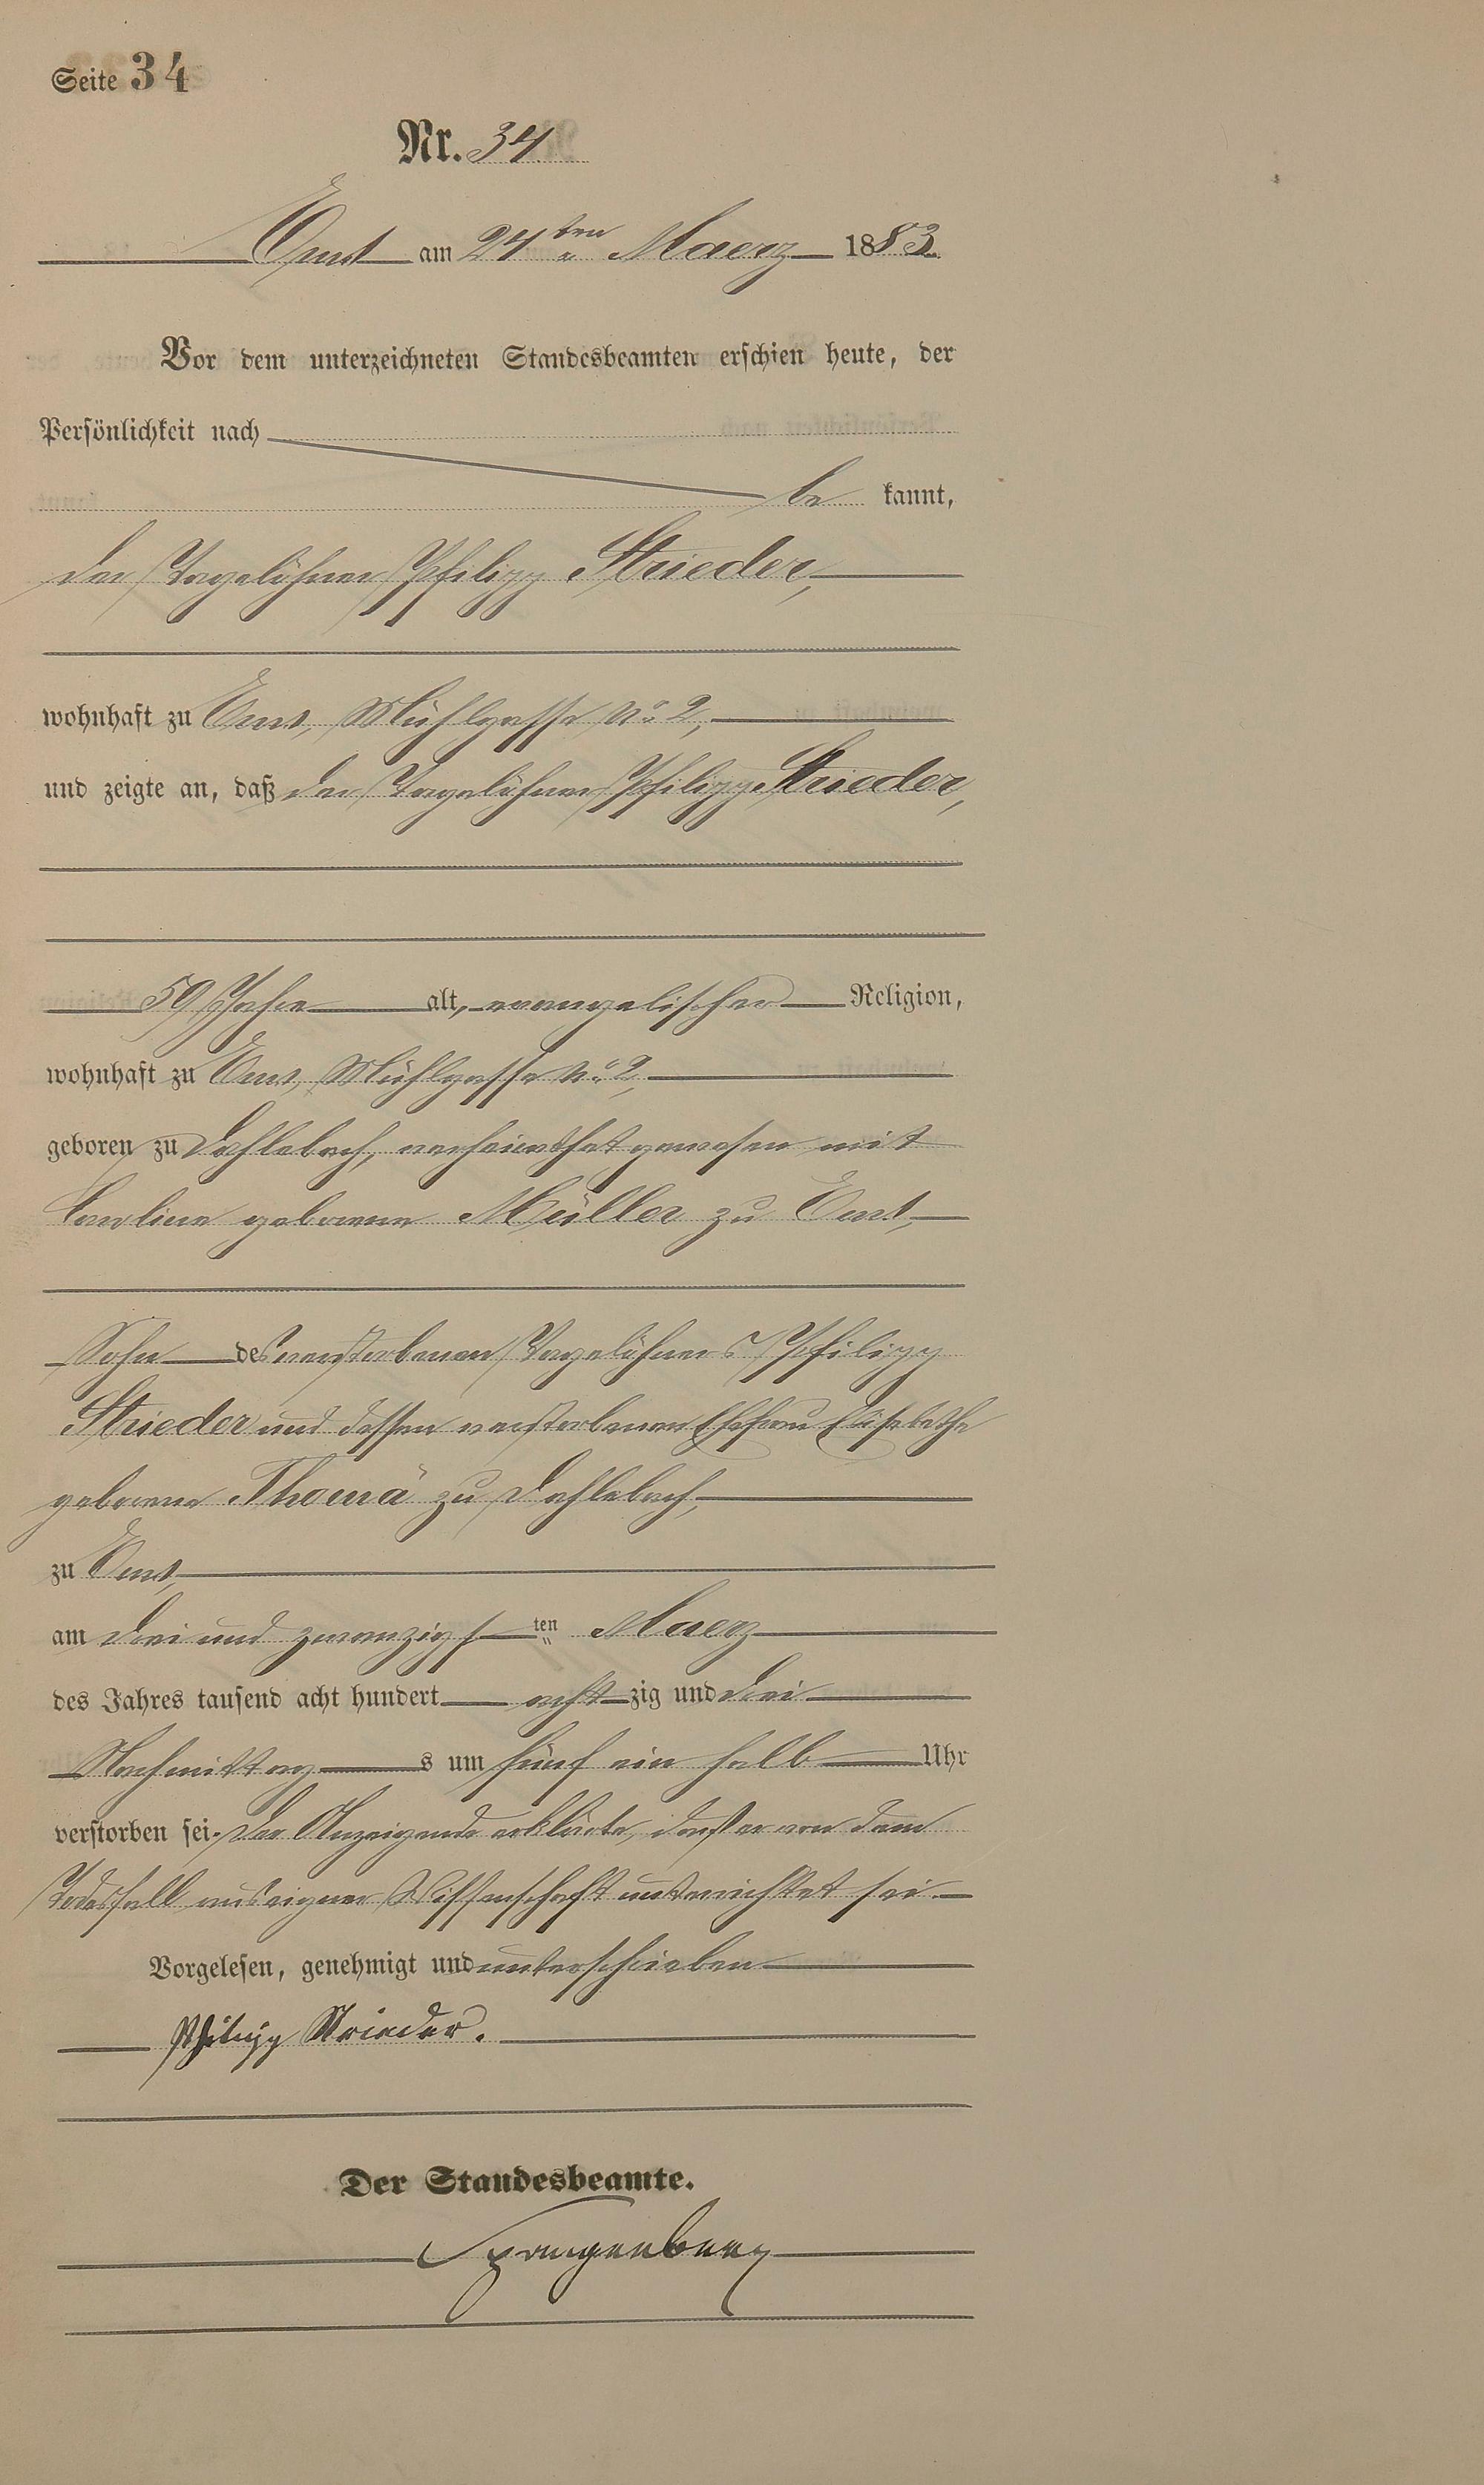 Seite 34
Nr. 34
Ems am 24ten Maerz 1883.
Vor dem unterzeichneten Standesbeamten erschien heute, der
Persönlichkeit nach
be kannt,
der Tagelöhner Philipp Strieder,
wohnhaft zu Ems, Mühlgasse No 2,
und zeigte an, daß der Tagelöhner Philipp Strieder,
59 Jahre alt, evangelischer Religion,
wohnhaft zu Ems, Mühlgasse No 2,
geboren zu Dehlebach, verheirathet gewesen mit
Caroline geborene Müller zu Ems,
Sohn des verstorbenen Tagelöhners Philipp
Strieder und dessen verstorbenen Ehefrau Elisabethe
geborene Thomä zu Dehlebach,
zu Ems,
am drei und zwanzigsten Maerz
des Jahres tausend acht hundert achtzig und drei
Nachmittags um fünf ein halb Uhr
verstorben sei. Der Anzeigende erklärte, daß er von dem
Todesfall aus eigener Wissenschaft unterrichtet sei.
Vorgelesen, genehmigt und unterschrieben
Philipp Strieder.
Der Standesbeamte.
Spangenberg